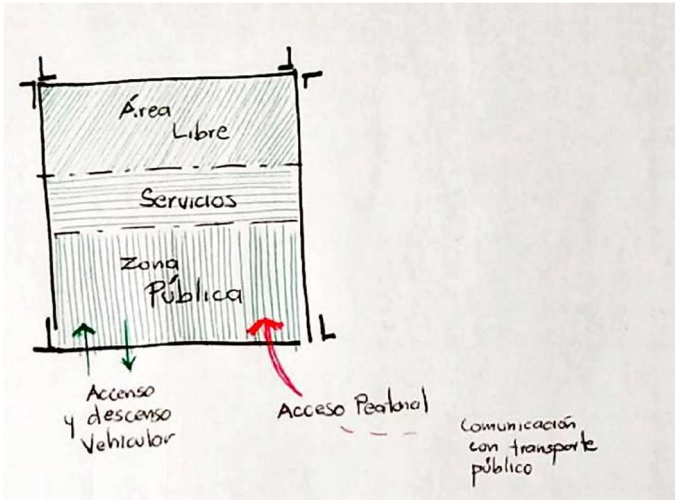 Área
Libre
Servicios
Zona
Pública
Accenso
y descenso
Vehicular
Acceso Peatonal
Comunicación
con transporte
público